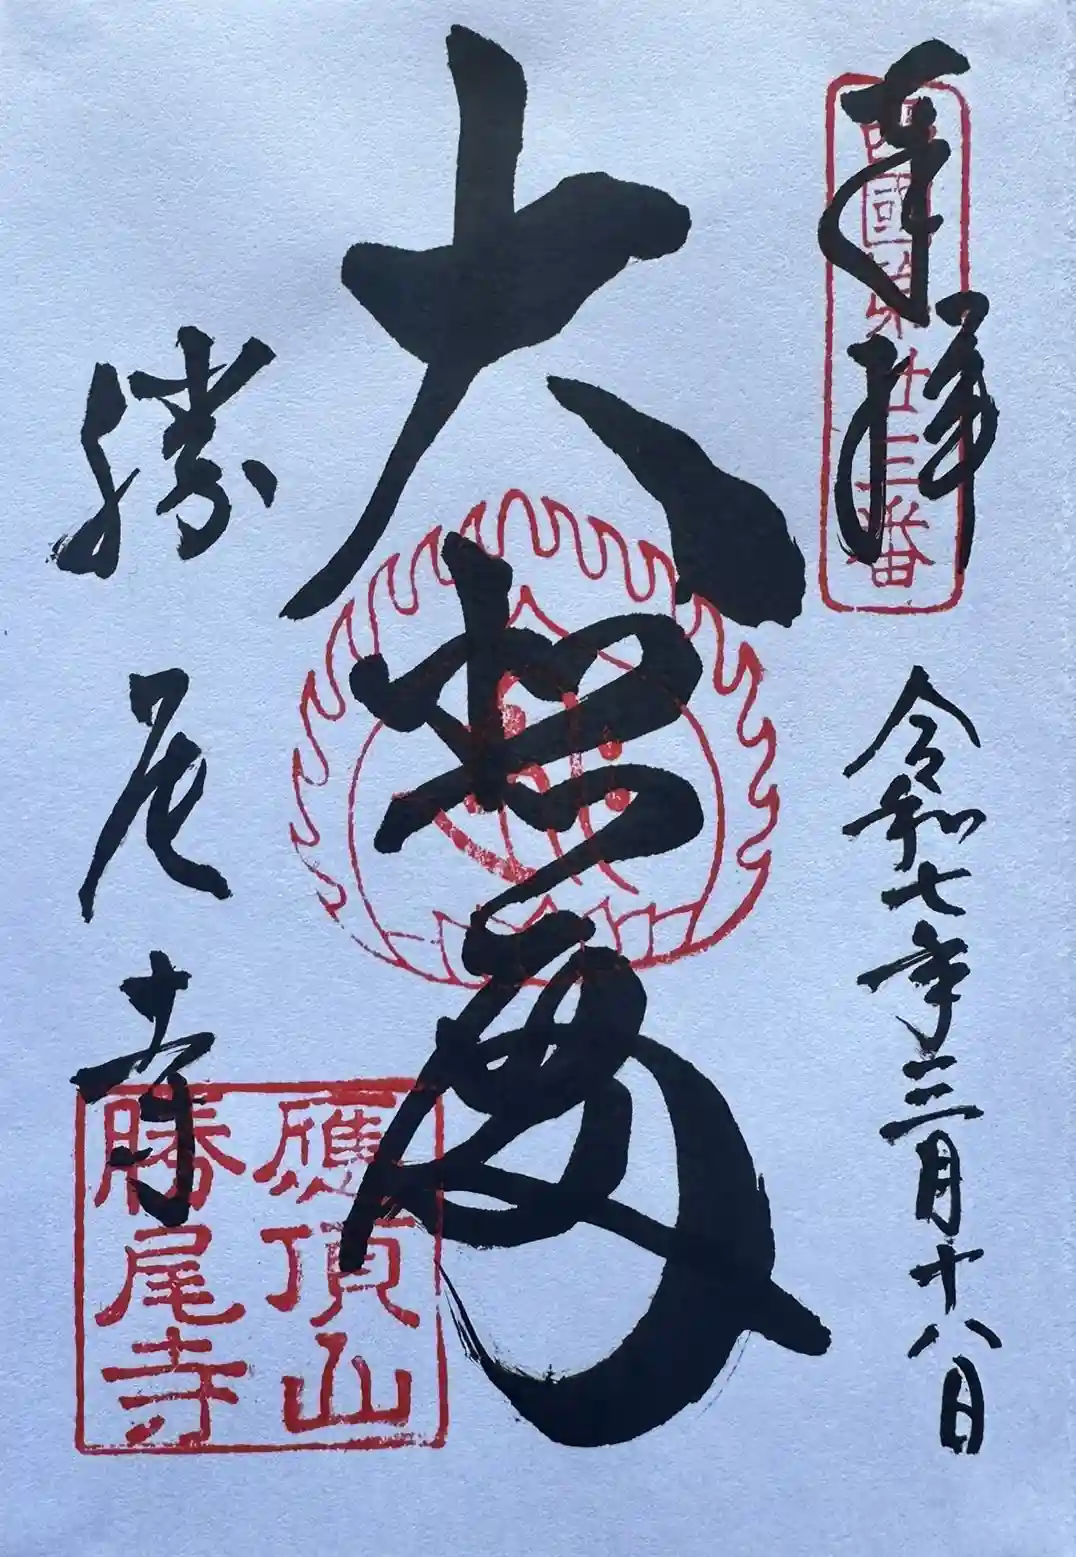 奉拝
西國第廿三番
令和七年三月十八日
大悲殿
勝尾寺
應頂山
勝尾寺